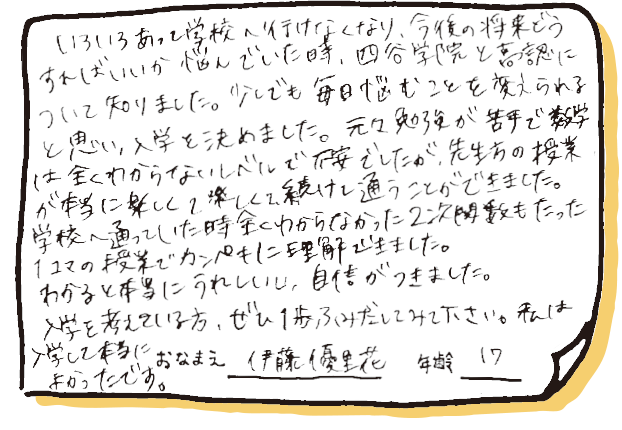 いろいろあって学校へ行けなくなり、今後の将来どう
すればいいか悩んでいた時、四谷学院と高認に
ついて知りました。少しでも毎日悩むことを変えられる
と思い、入学を決めました。元々勉強が苦手で数学
は全くわからないレベルで不安でしたが、先生方の授業
が本当に楽しくて楽しくて、続けて通うことができました。
学校へ通っていた時全くわからなかった2次関数もたった
1コマの授業でカンペキに理解できました。
わかると本当にうれしいし、自信がつきました。
入学を考えている方、ぜひ1歩ふみだしてみて下さい。私は
入学して本当に
よかったです。
おなまえ 伊藤優里花 年齢 17